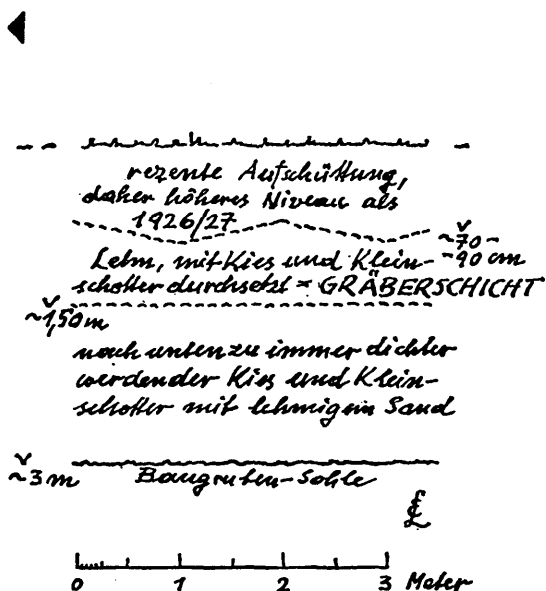 rezente Aufschüttung,
daher höheres Niveau als
1926/27
~70-
-90 cm
Lehm, mit Kies und Klein-
schotter durchsetzt = GRÄBERSCHICHT
~1,50 m
nach unten zu immer dichter
werdender Kies und Klein-
schotter mit lehmigem Sand
~3 m
Baugruben-Sohle
0 1 2 3 Meter